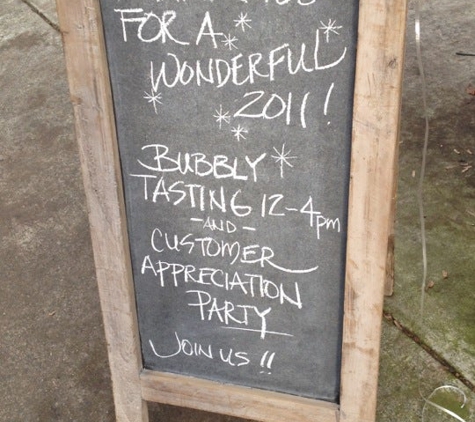 FOR A
WONDERFUL
2011!
BUBBLY
TASTING 12-4pm
-AND-
CUSTOMER
APPRECIATION
PARTY
JOIN US!!